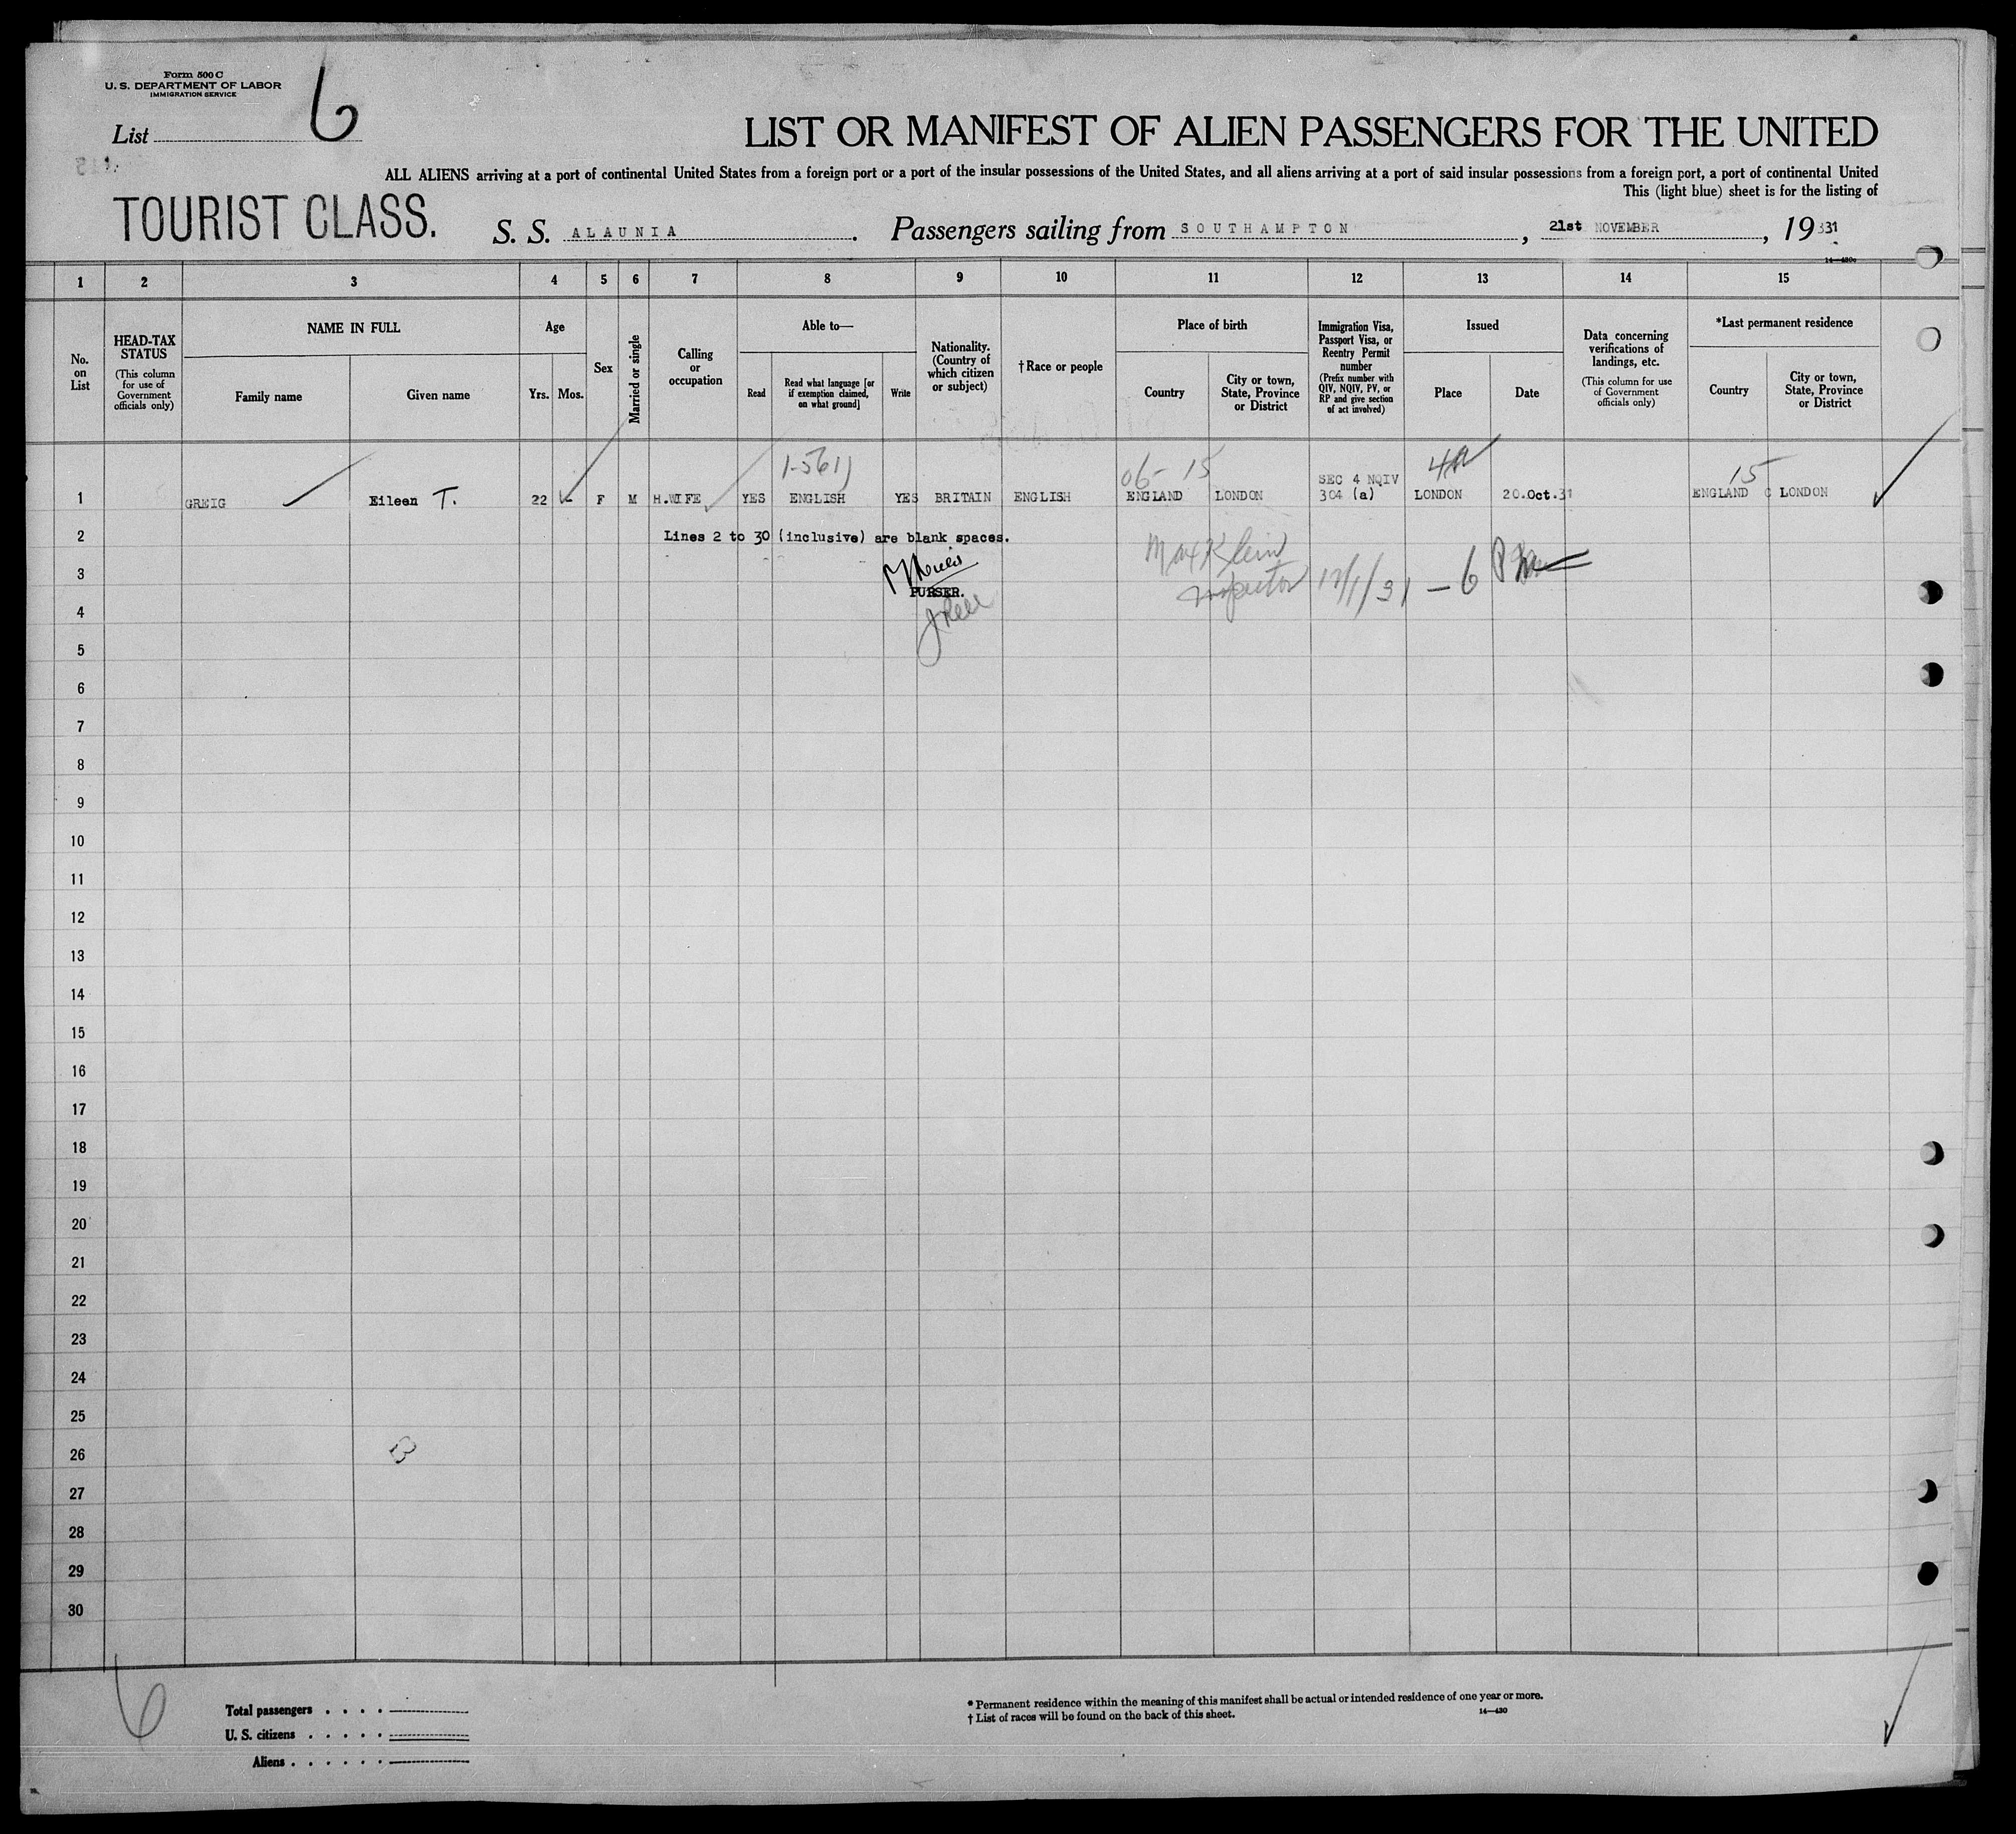 Form 500 C
U. S. DEPARTMENT OF LABOR
IMMIGRATION SERVICE
List 6
LIST OR MANIFEST OF ALIEN PASSENGERS FOR THE UNITED
ALL ALIENS arriving at a port of continental United States from a foreign port or a port of the insular possessions of the United States, and all aliens arriving at a port of said insular possessions from a foreign port, a port of continental United
This (light blue) sheet is for the listing of
TOURIST CLASS.
S. S. ALAUNIA. Passengers sailing from SOUTHAMPTON, 21st NOVEMBER, 1931
1 2 3 4 5 6 7 8 9 10 11 12 13 14 15
No. on List
HEAD-TAX STATUS
(This column for use of Government officials only)
NAME IN FULL
Family name
Given name
Age
Yrs.
Mos.
Sex
Married or single
Calling or occupation
Able to—
Read
Read what language [or if exemption claimed, on what ground]
Write
Nationality. (Country of which citizen or subject)
† Race or people
Place of birth
Country
City or town, State, Province or District
Immigration Visa, Passport Visa, or Reentry Permit number
(Prefix number with QIV, NQIV, PV, or RP and give section of act involved)
Issued
Place
Date
Data concerning verifications of landings, etc.
(This column for use of Government officials only)
*Last permanent residence
Country
City or town, State, Province or District
06- 15 15
SEC 4 NQIV
1 GREIG Eileen T. 22 - F M H.WIFE YES ENGLISH YES BRITAIN ENGLISH ENGLAND LONDON 304 (a) LONDON 20.Oct.31 ENGLAND LONDON
2 Lines 2 to 30 (inclusive) are blank spaces.
Max Klein
3 Inspector 12/1/31 - 6 PM
PURSER.
4
5
6
7
8
9
10
11
12
13
14
15
16
17
18
19
20
21
22
23
24
25
26
27
28
29
30
6
Total passengers . . . .
U. S. citizens . . . . .
Aliens . . . . . .
* Permanent residence within the meaning of this manifest shall be actual or intended residence of one year or more.
† List of races will be found on the back of this sheet.
14—430